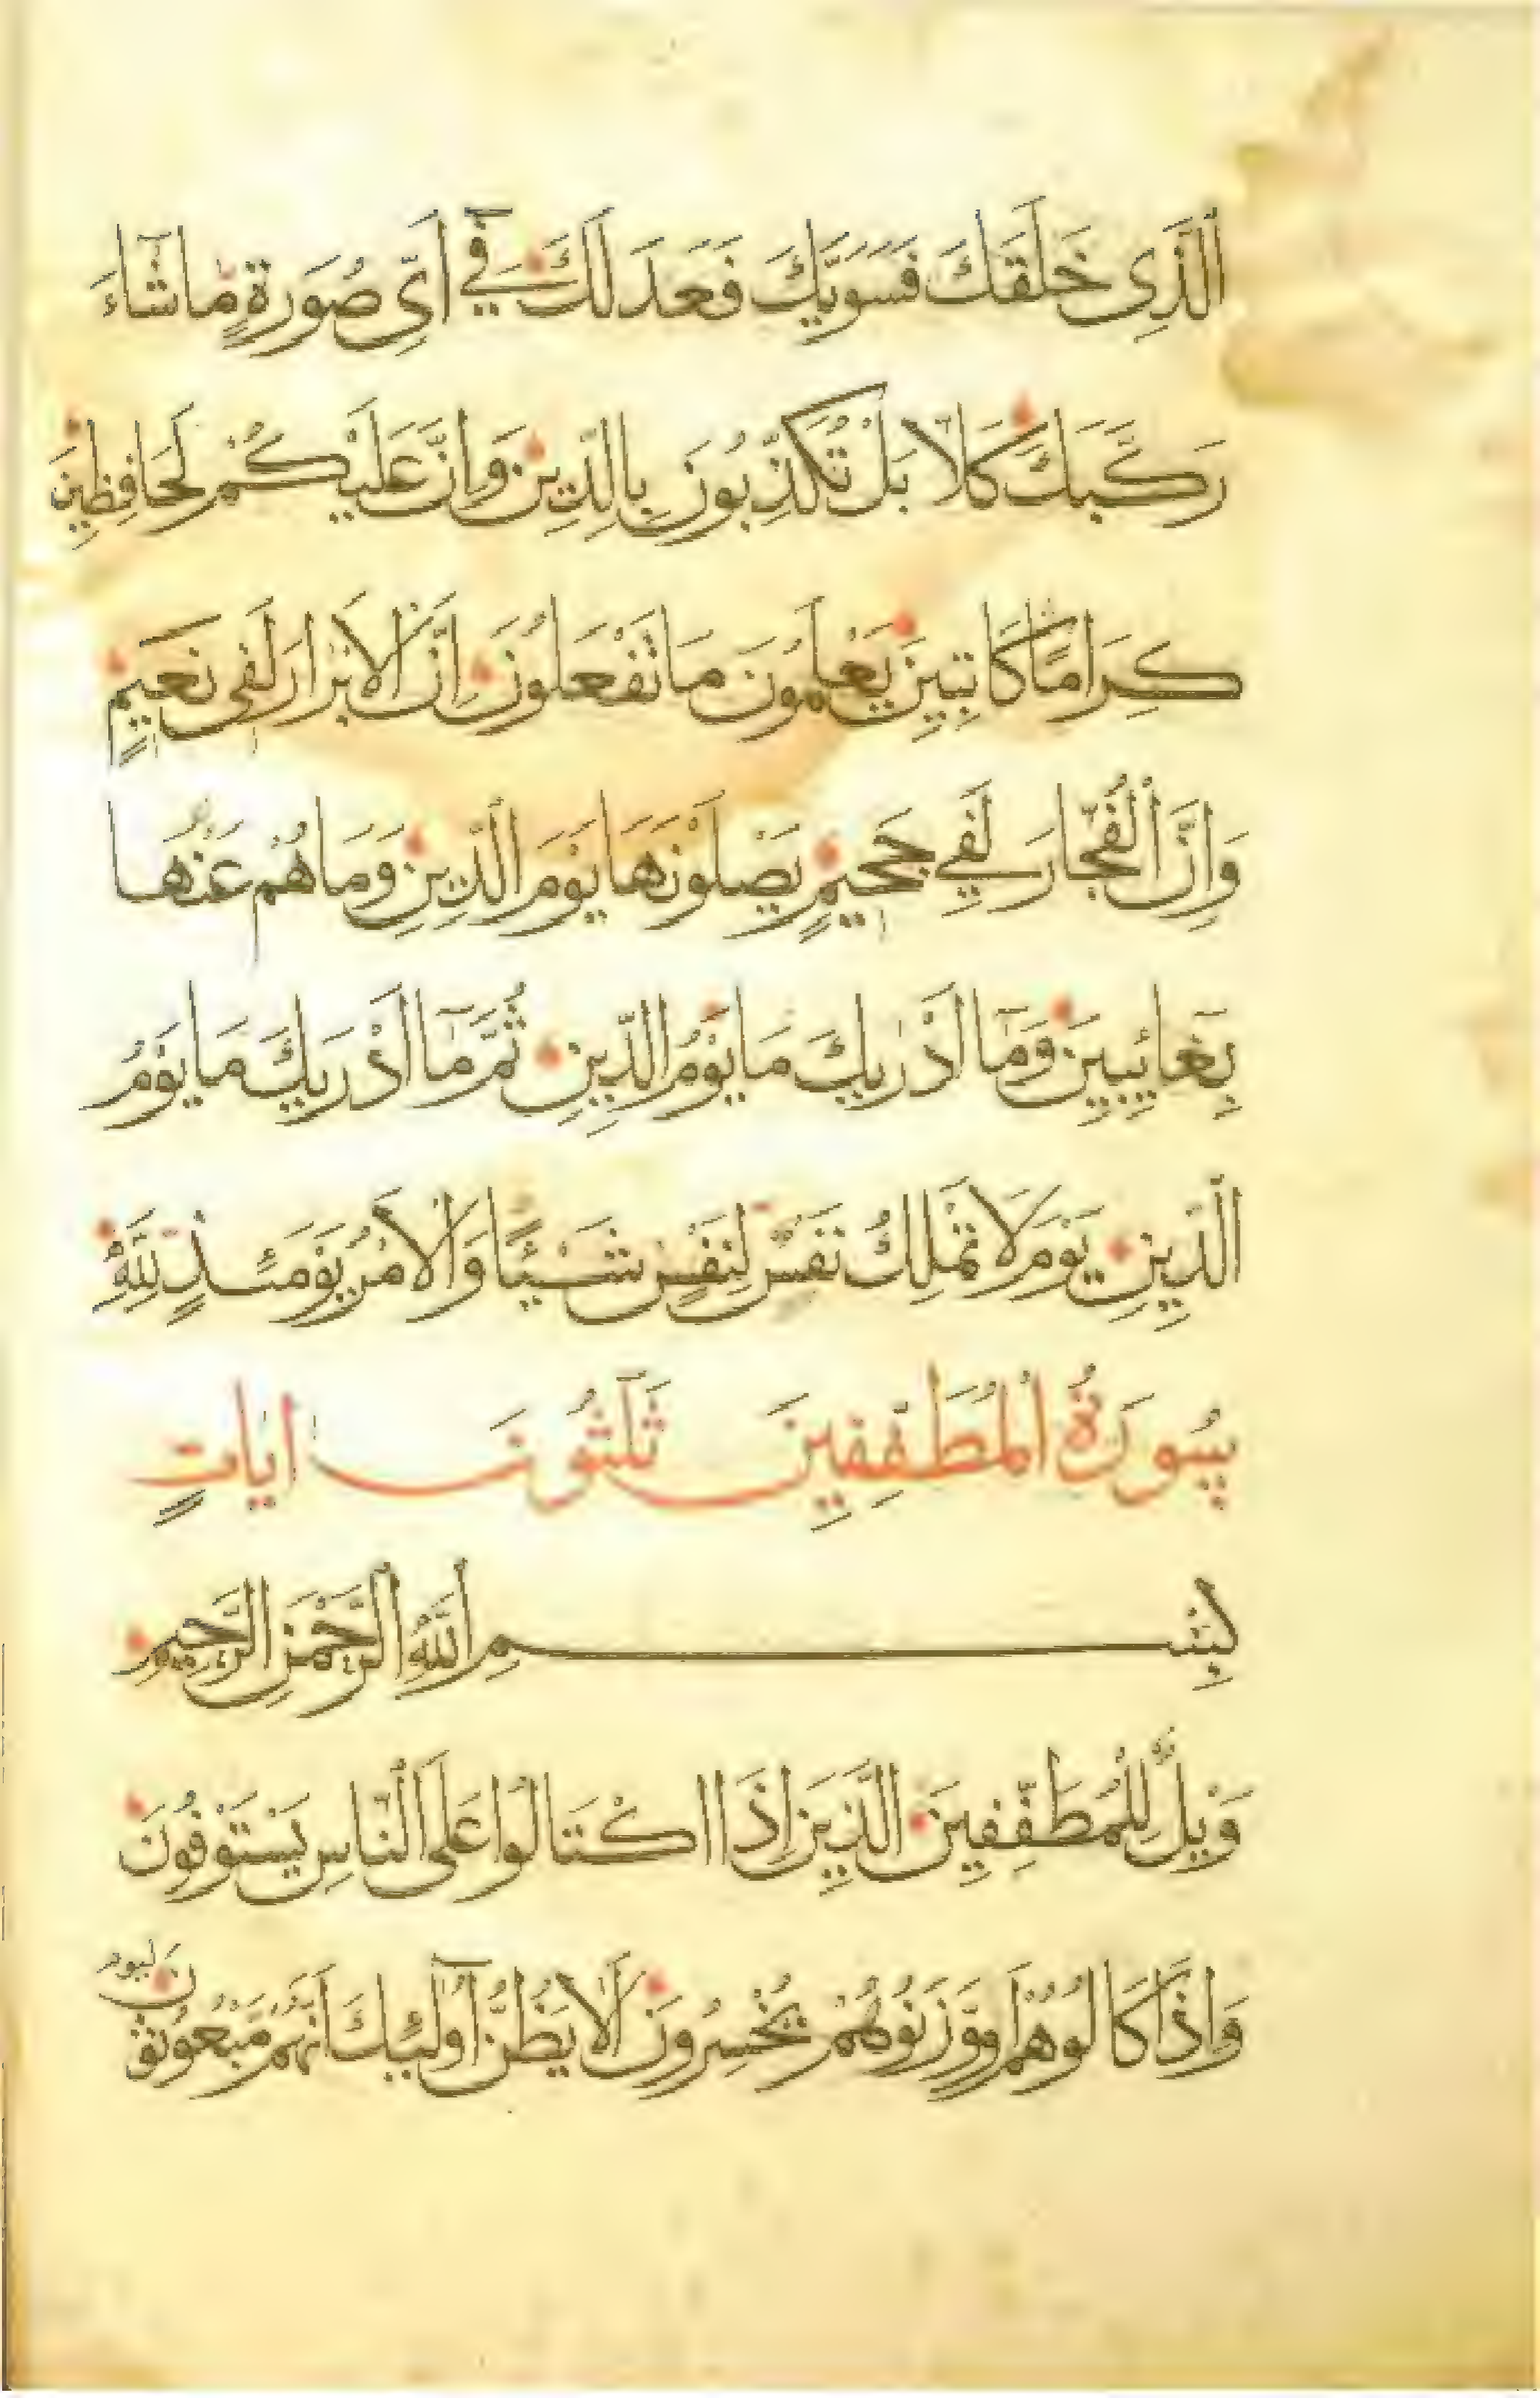 اَلَّذِى خَلَقَكَ فَسَوّٰيكَ فَعَدَلَكَ فِيٓ اَىِّ صُورَةٍ مَّا شَآءَ
رَكَّبَكَ كَلَّا بَلْ تُكَذِّبُونَ بِالدِّينِ وَاِنَّ عَلَيْكُمْ لَحَافِظِينَ
كِرَامًا كَاتِبِينَ يَعْلَمُونَ مَا تَفْعَلُونَ اِنَّ الْاَبْرَارَ لَفِى نَعِيمٍ
وَاِنَّ الْفُجَّارَ لَفِي جَحِيمٍ يَصْلَوْنَهَا يَوْمَ الدِّينِ وَمَا هُمْ عَنْهَا
بِغَائِبِينَ وَمَٓا اَدْرٰيكَ مَا يَوْمُ الدِّينِ ثُمَّ مَٓا اَدْرٰيكَ مَا يَوْمُ
الدِّينِ يَوْمَ لَا تَمْلِكُ نَفْسٌ لِنَفْسٍ شَيْئًا وَالْاَمْرُ يَوْمَئِذٍ لِلّٰهِ
سُورَةُ الْمُطَفِّفِينَ ثَلٰثُونَ اٰيَاتٍ
بِسْمِ اللّٰهِ الرَّحْمٰنِ الرَّحِيمِ
وَيْلٌ لِلْمُطَفِّفِينَ الَّذِينَ اِذَا اكْتَالُوا عَلَى النَّاسِ يَسْتَوْفُونَ
وَاِذَا كَالُوهُمْ اَو وَّزَنُوهُمْ يُخْسِرُونَ اَلَا يَظُنُّ اُولٰٓئِكَ اَنَّهُمْ مَبْعُوثُونَ لِيَوْمٍ